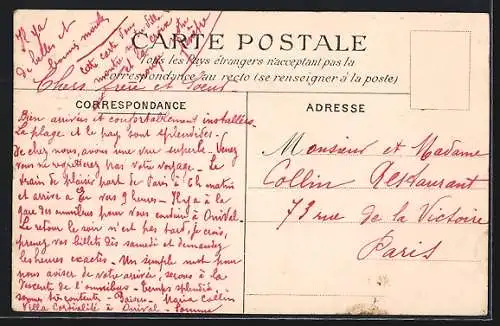 Il y a
de belles et
bonnes moules
cette carte vous
montre notre villa
et la
CARTE POSTALE
Tous les Pays étrangers n'acceptent pas la
correspondance au recto (se renseigner à la poste)
Chers frère et sœur
CORRESPONDANCE
Bien arrivés et confortablement installés.
La plage et le pays sont splendides.
De chez nous, avons une vue superbe. Venez
vous ne regretterez pas votre voyage. Le
train de plaisir part de Paris à 6h matin
et arrive à Eu vers 9 heures. Il y a à la
gare des omnibus pour vous conduire à Onival.
Le retour le soir n'est pas tard, je crois,
prenez vos billets dès samedi et demandez
les heures exactes. Un simple mot pour
nous aviser de votre arrivée, serons à la
descente de l'omnibus. Temps splendide,
serons très contents. Baisers. Maria Collin
Villa Cordialité à Onival. Somme
ADRESSE
Monsieur et Madame
Collin Restaurant
73 rue de la Victoire
Paris